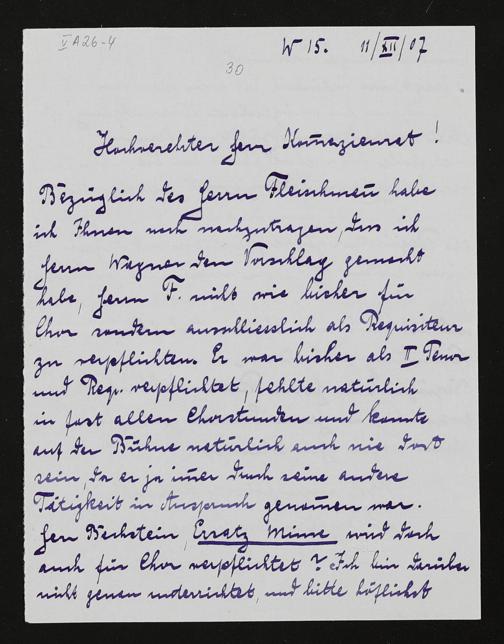 V A26-4
W 15. 11/XII/07
30
Hochverehrter Herr Kom̅erzienrat!
Bezüglich des Herrn Fleischman̅ habe
ich Ihnen noch nachzutragen, dass ich
Herrn Wagner den Vorschlag gemacht
habe, Herrn F. nicht wie bisher für
Chor sondern ausschliesslich als Requisiteur
zu verpflichten. Er war bisher als II Tenor
und Requ. verpflichtet, fehlte natürlich
in fast allen Chorstunden und konnte
auf der Bühne natürlich auch nie dort
sein, da er ja im̅er durch seine andere
Tätigkeit in Anspruch genom̅en war.
Herr Bechstein, Ersatz Mime wird doch
auch für Chor verpflichtet? Ich bin darüber
nicht genau unterrichtet, und bitte höflichst